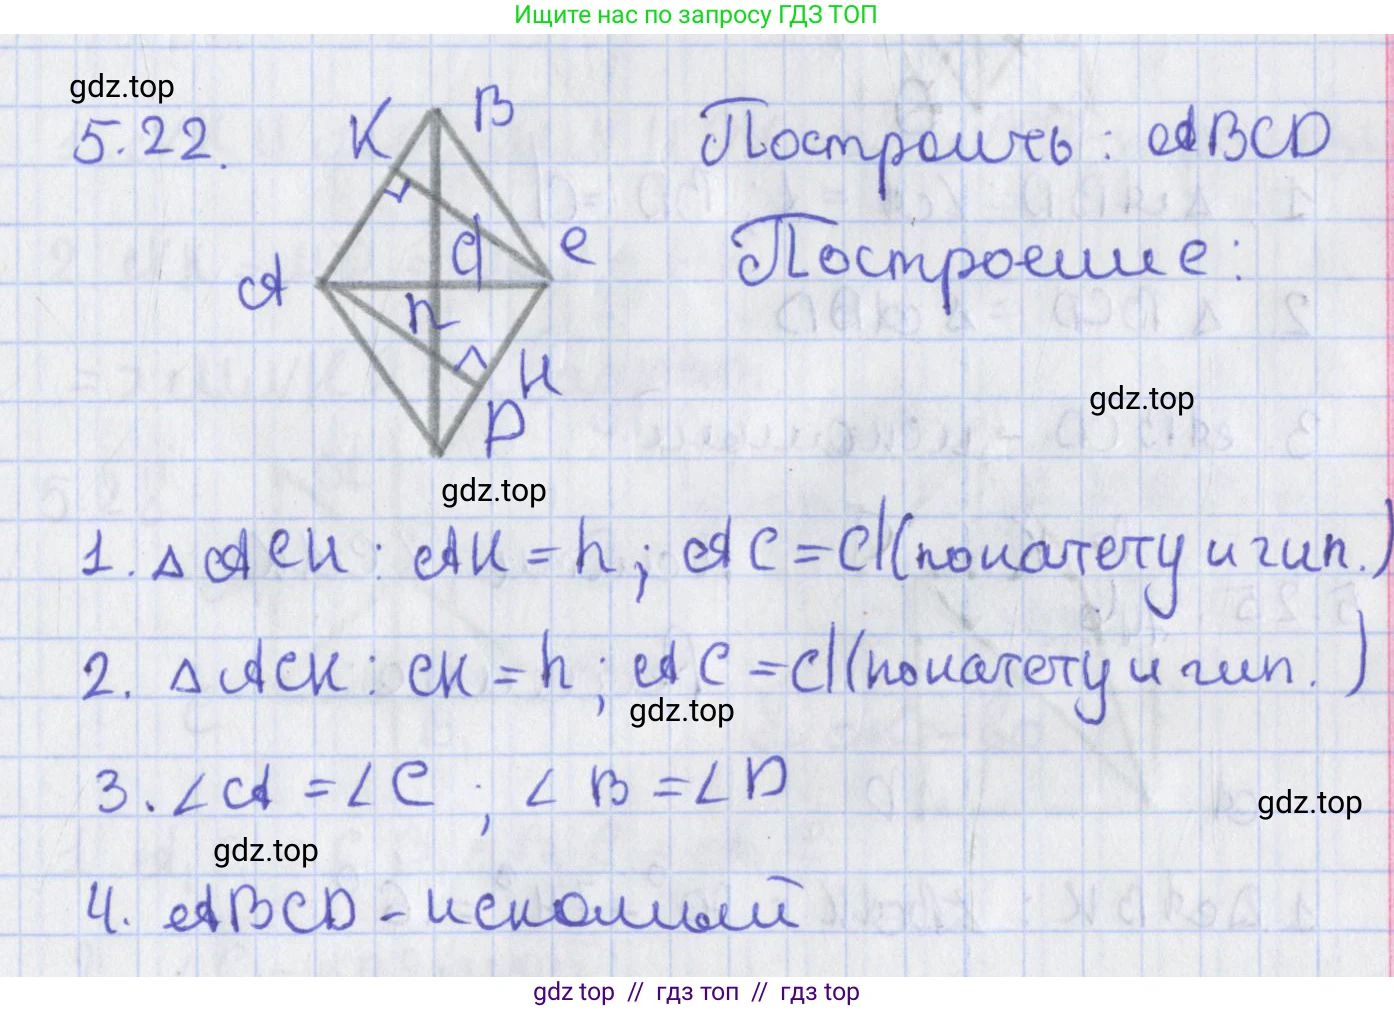 Ищите нас по запросу ГДЗ ТОП
gdz.top
5.22.
K B
Построить: ABCD
A d C
Построение:
h
H
gdz.top
D
gdz.top
1. △ ACH: AH = h; AC = d (по катету и гип.)
2. △ ACK: CK = h; AC = d (по катету и гип.)
gdz.top
3. ∠A = ∠C; ∠B = ∠D
gdz.top
gdz.top
4. ABCD - искомый
gdz top // гдз топ // гдз top